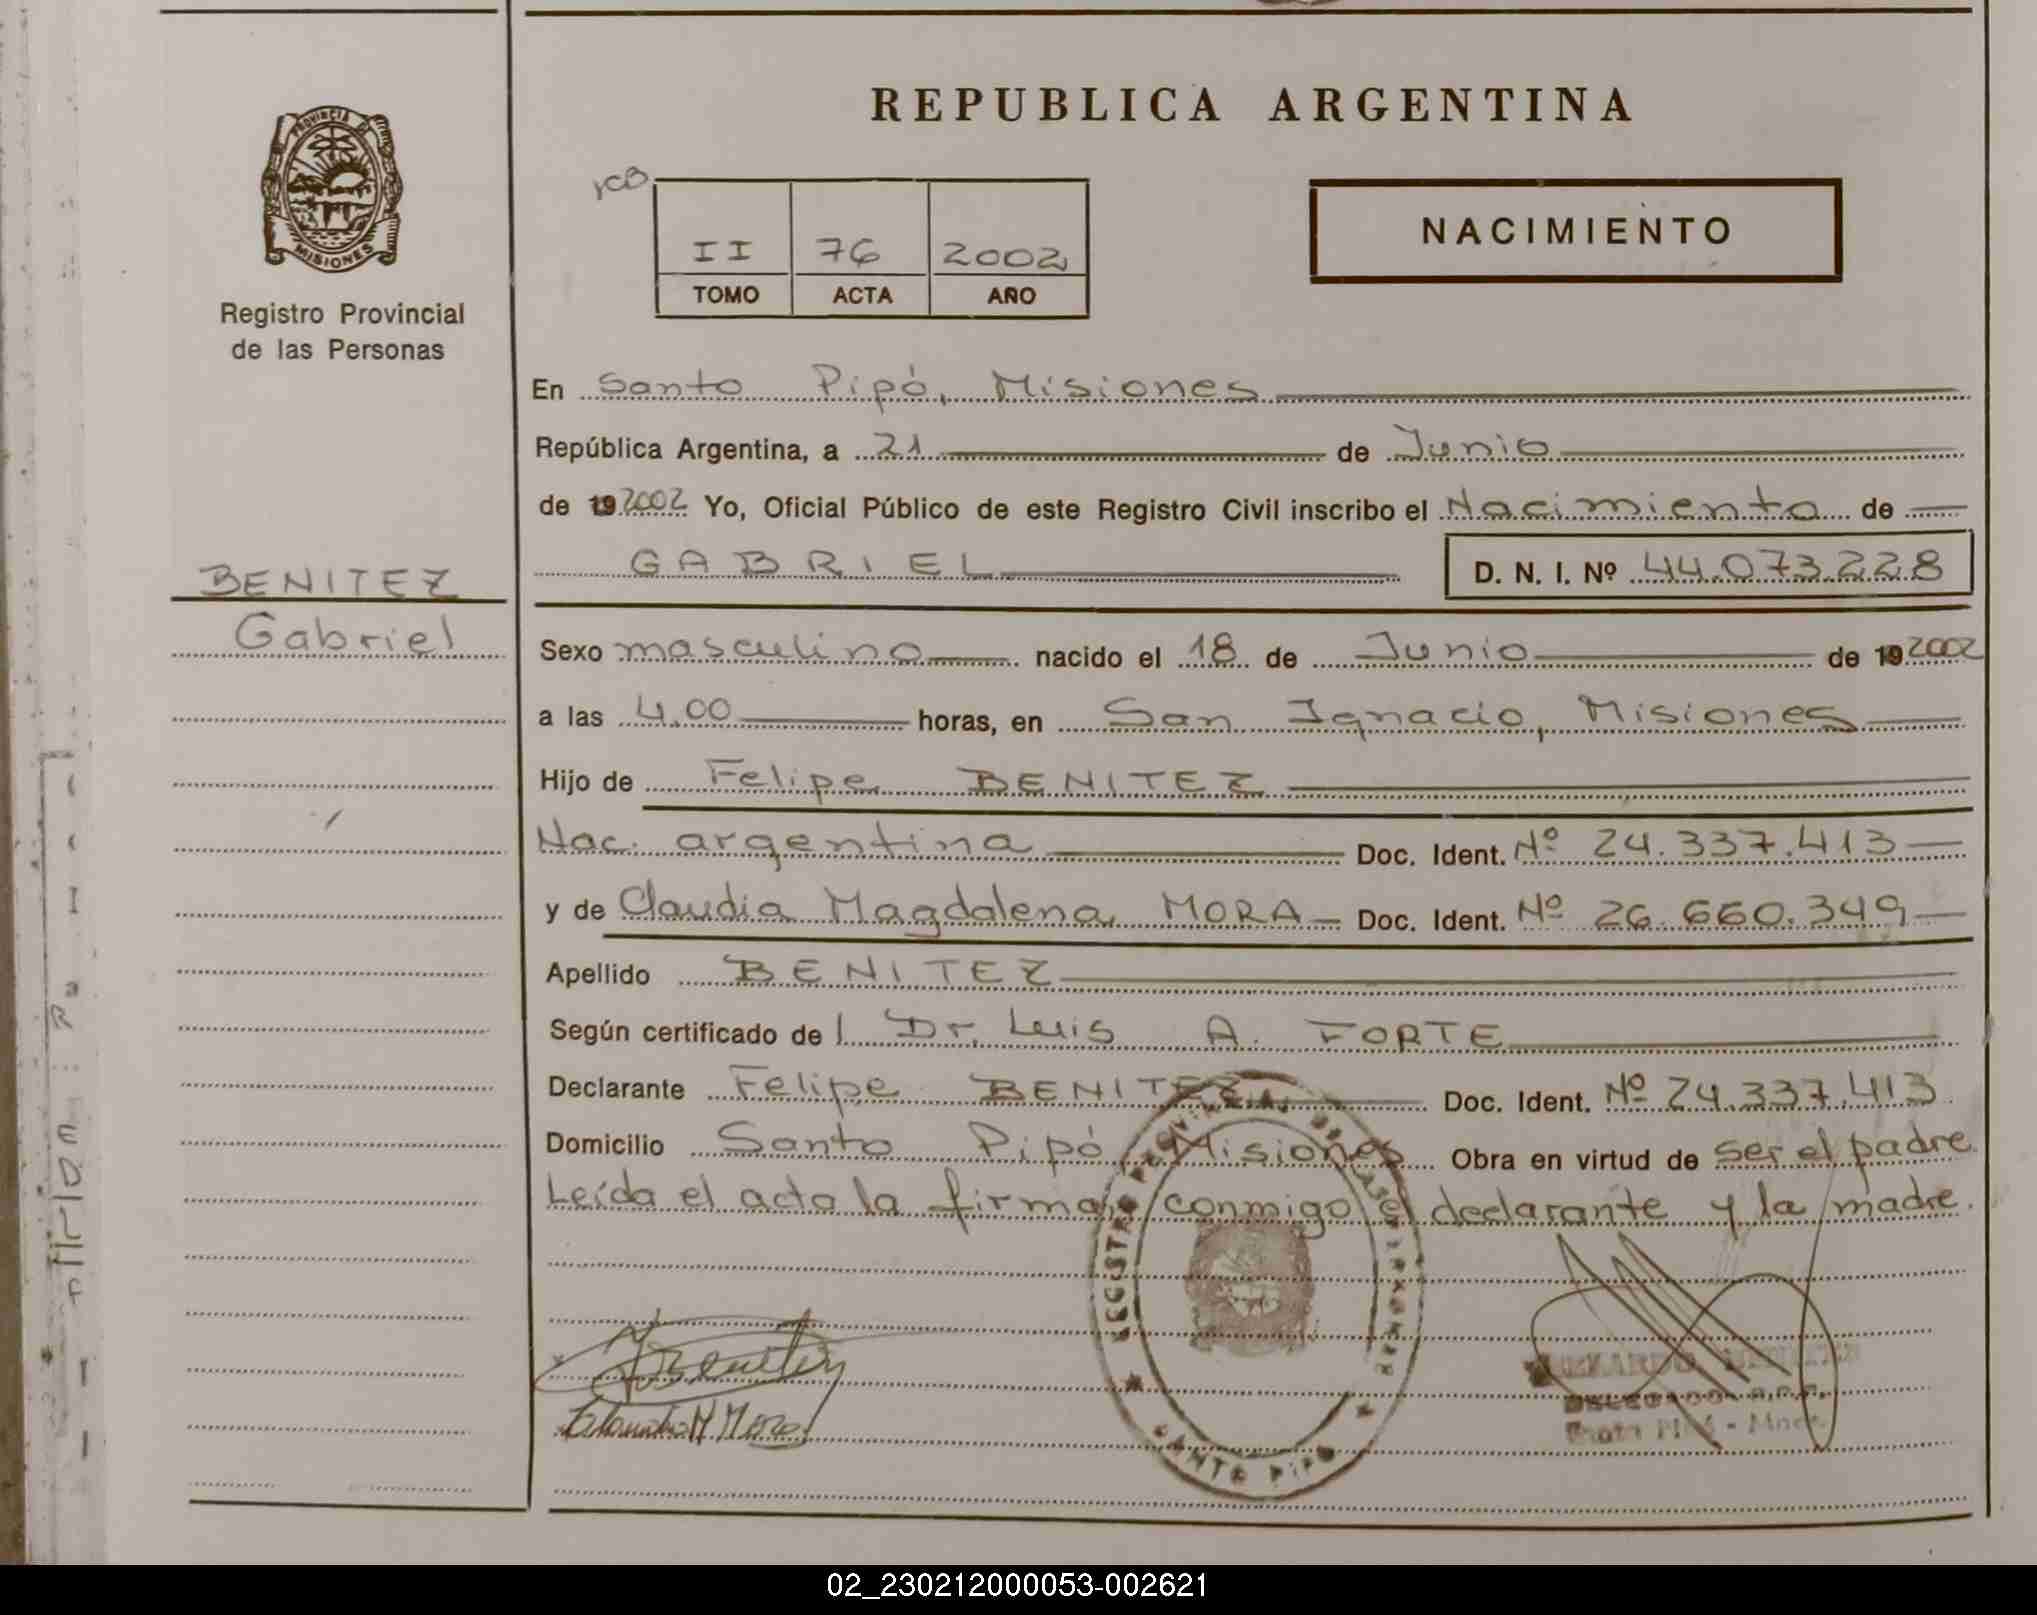 REPUBLICA ARGENTINA
PROVINCIA DE
MISIONES
Registro Provincial
de las Personas
NACIMIENTO
II 76 2002
TOMO ACTA AÑO
En Santo Pipó, Misiones
República Argentina, a 21 de Junio
de 19 2002 Yo, Oficial Público de este Registro Civil inscribo el Nacimiento de
GABRIEL D. N. I. Nº 44.073.228
BENITEZ
Gabriel
Sexo masculino nacido el 18 de Junio de 19 2002
a las 4.00 horas, en San Ignacio, Misiones
Hijo de Felipe BENITEZ
Nac. argentina Doc. Ident. Nº 24.337.413
y de Claudia Magdalena MORA Doc. Ident. Nº 26.660.349
Apellido BENITEZ
Según certificado del Dr. Luis A. FORTE
Declarante Felipe BENITEZ Doc. Ident. Nº 24.337.413
Domicilio Santo Pipó, Misiones Obra en virtud de ser el padre.
Leída el acta la firman conmigo el declarante y la madre.
SANTO PIPO
DELEGADO R.P.P.
02_230212000053-002621